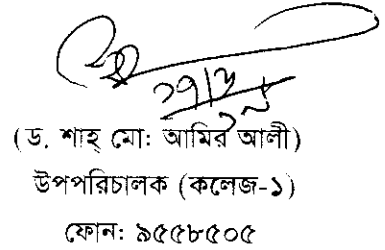 (ড. শাহ্ মো: আমির আলী)
উপপরিচালক (কলেজ-১)
ফোন: ৯৫৫৮৫০৫